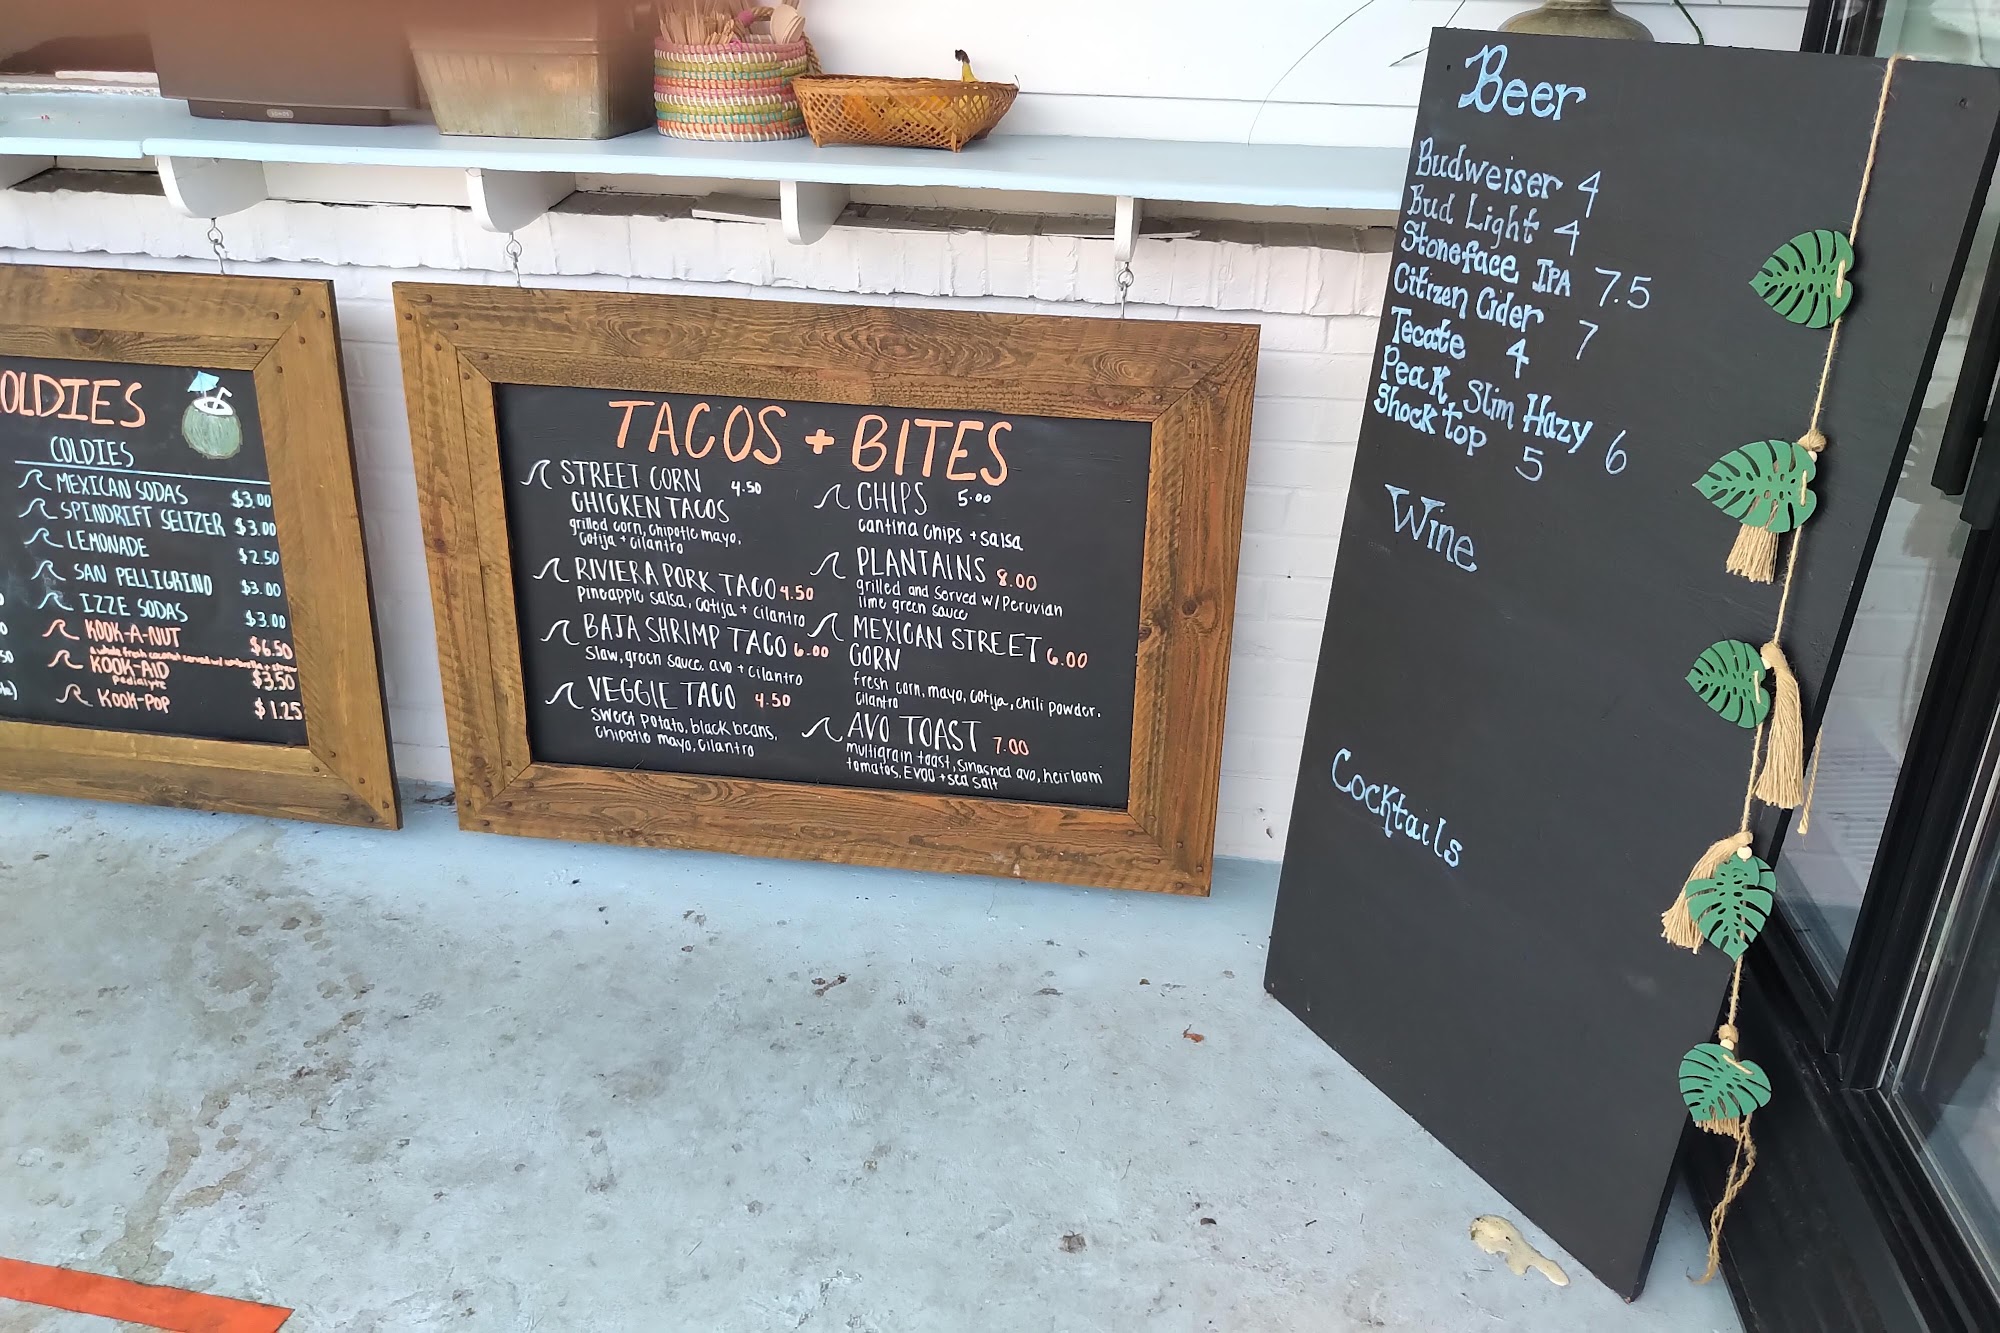 OLDIES
COLDIES
MEXICAN SODAS $3.00
SPINDRIFT SELTZER $3.00
LEMONADE $2.50
SAN PELLIGRINO $3.00
IZZE SODAS $3.00
KOOK-A-NUT $6.50
a whole fresh coconut served w/ umbrella + straw
KOOK-AID $3.50
Pedialyte
KOOK-POP $1.25
TACOS + BITES
STREET CORN 4.50
CHICKEN TACOS
grilled corn, chipotle mayo,
cotija + cilantro
RIVIERA PORK TACO 4.50
pineapple salsa, cotija + cilantro
BAJA SHRIMP TACO 6.00
slaw, green sauce, avo + cilantro
VEGGIE TACO 4.50
sweet potato, black beans,
chipotle mayo, cilantro
CHIPS 5.00
cantina chips + salsa
PLANTAINS 8.00
grilled and served w/ Peruvian
lime green sauce
MEXICAN STREET 6.00
CORN
fresh corn, mayo, cotija, chili powder,
cilantro
AVO TOAST 7.00
multigrain toast, smashed avo, heirloom
tomatos, EVOO + sea salt
Beer
Budweiser 4
Bud Light 4
Stoneface IPA 7.5
Citizen Cider 7
Tecate 4
Peak Slim Hazy 6
Shock top 5
Wine
Cocktails